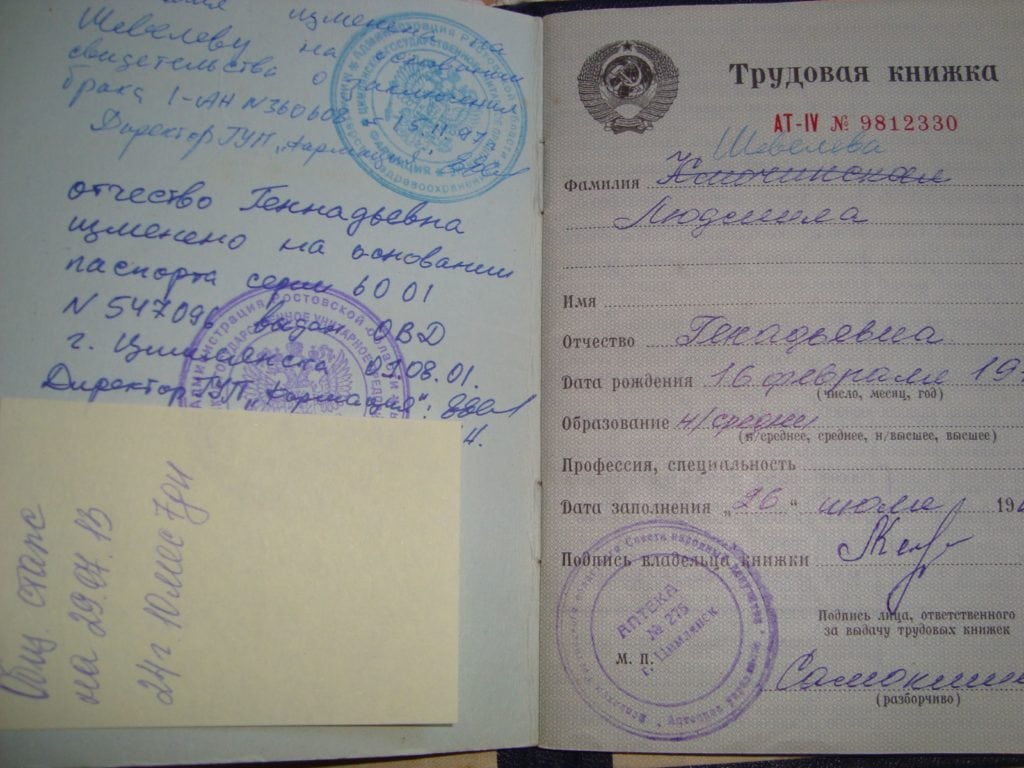 изменена
Шевелеву на основании
свидетельства о заключении
брака I-АН N360608 15.11.97
Директор ГУП „Фармация"
отчество Геннадьевна
изменено на основании
паспорта серии 60 01
N 547096 выдан ОВД
г. Цимлянска 03.08.01.
Директор ГУП „Фармация":
Общ. стаж
на 29.07.13
24г 10мес 7дн
Трудовая книжка
АТ-IV № 9812330
Шевелева
Фамилия
Людмила
Имя
Отчество Генадьевна
Дата рождения 16 февраля 19
(число, месяц, год)
Образование н/средн
(н/среднее, среднее, н/высшее, высшее)
Профессия, специальность
Дата заполнения „26" июля 19
Подпись владельца книжки
Подпись лица, ответственного
за выдачу трудовых книжек
М. П.
(разборчиво)
АПТЕКА
№ 275
г. Цимлянск